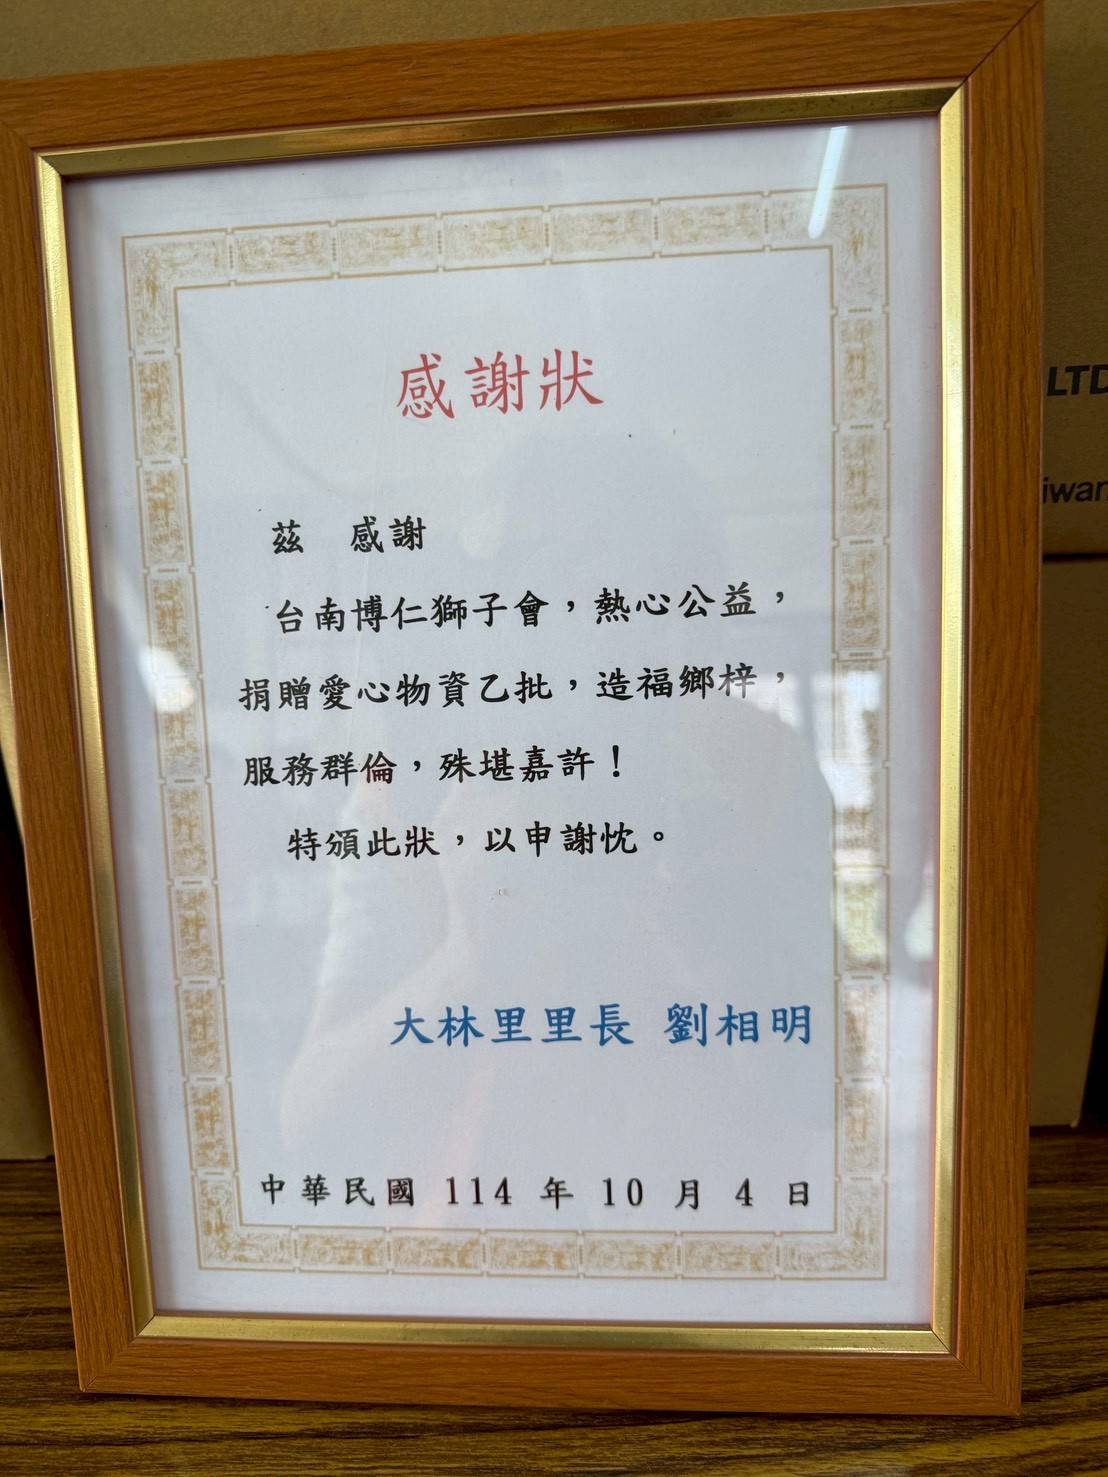 感謝狀
茲 感謝
台南博仁獅子會，熱心公益，
捐贈愛心物資乙批，造福鄉梓，
服務群倫，殊堪嘉許！
特頒此狀，以申謝忱。
大林里里長 劉相明
中華民國 114 年 10 月 4 日
LTD
iwan